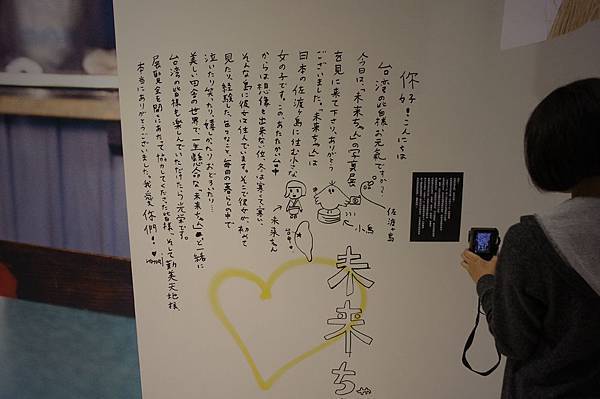 你好!こんにちは
台湾の皆様お元気ですか?
今日は、「未来ちゃん」の写真展
を見に来て下さり、ありがとう
ございました。「未来ちゃん」は
日本の佐渡ヶ島に住む小さな
女の子です。このあたたかい台中
からは想像も出来ない位、冬は寒くて寒い、
そんな島に彼女は住んでいます。そこで彼女が、初めて
見たり、経験した、色々なこと、毎日の暮らしの中で
泣いたり笑ったり、嬉しがったりおどろいたり…
美しい田舎の世界で一生懸命な、未来ちゃんと一緒に
台湾の皆様も楽しんでいただけたら光栄です。
展覧会を開くにあたって協力してくださった皆様、そして勤美天地様、
本当にありがとうございました。我愛你們!
佐渡ヶ島
小鳥
未来ちゃん
台中
未来ちゃ